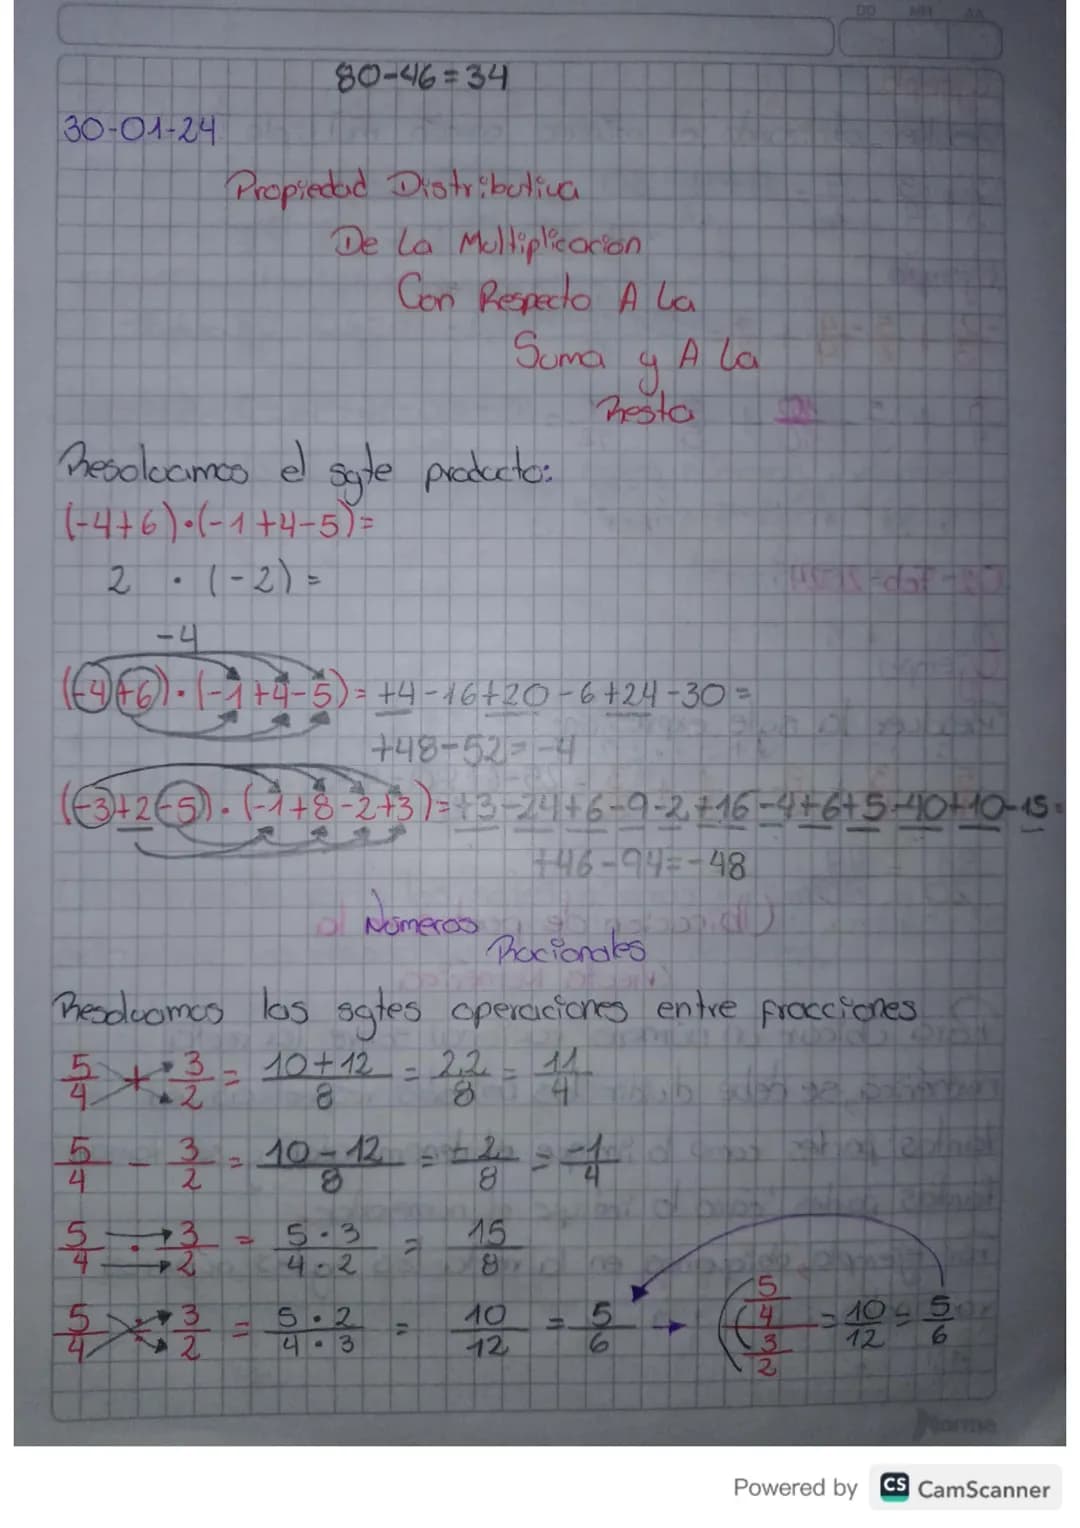 DD MM AA
80-46=34
30-01-24
Propiedad Distributiva
De La Multiplicacion
Con Respecto A La
Suma y A La
Resta
Resolvamos el sgte producto:
(-4+6)·(-1+4-5)=
2 · (-2) =
-4
(-4+6)·(-1+4-5)= +4-16+20-6+24-30=
+48-52=-4
(-3+2-5)·(-1+8-2+3)=+3-24+6-9-2+16-4+6+5-40+10-15=
+46-94=-48
Números
Racionales
Resolvamos las sgtes operaciones entre fracciones
5/4 + 3/2 = 10+12/8 = 22/8 = 11/4
5/4 - 3/2 = 10-12/8 = -2/8 = -1/4
5/4 · 3/2 = 5·3/4·2 = 15/8
5/4 : 3/2 = 5·2/4·3 = 10/12 = 5/6 → (5/4)/(3/2) = 10/12 = 5/6
Norma
Powered by CS CamScanner